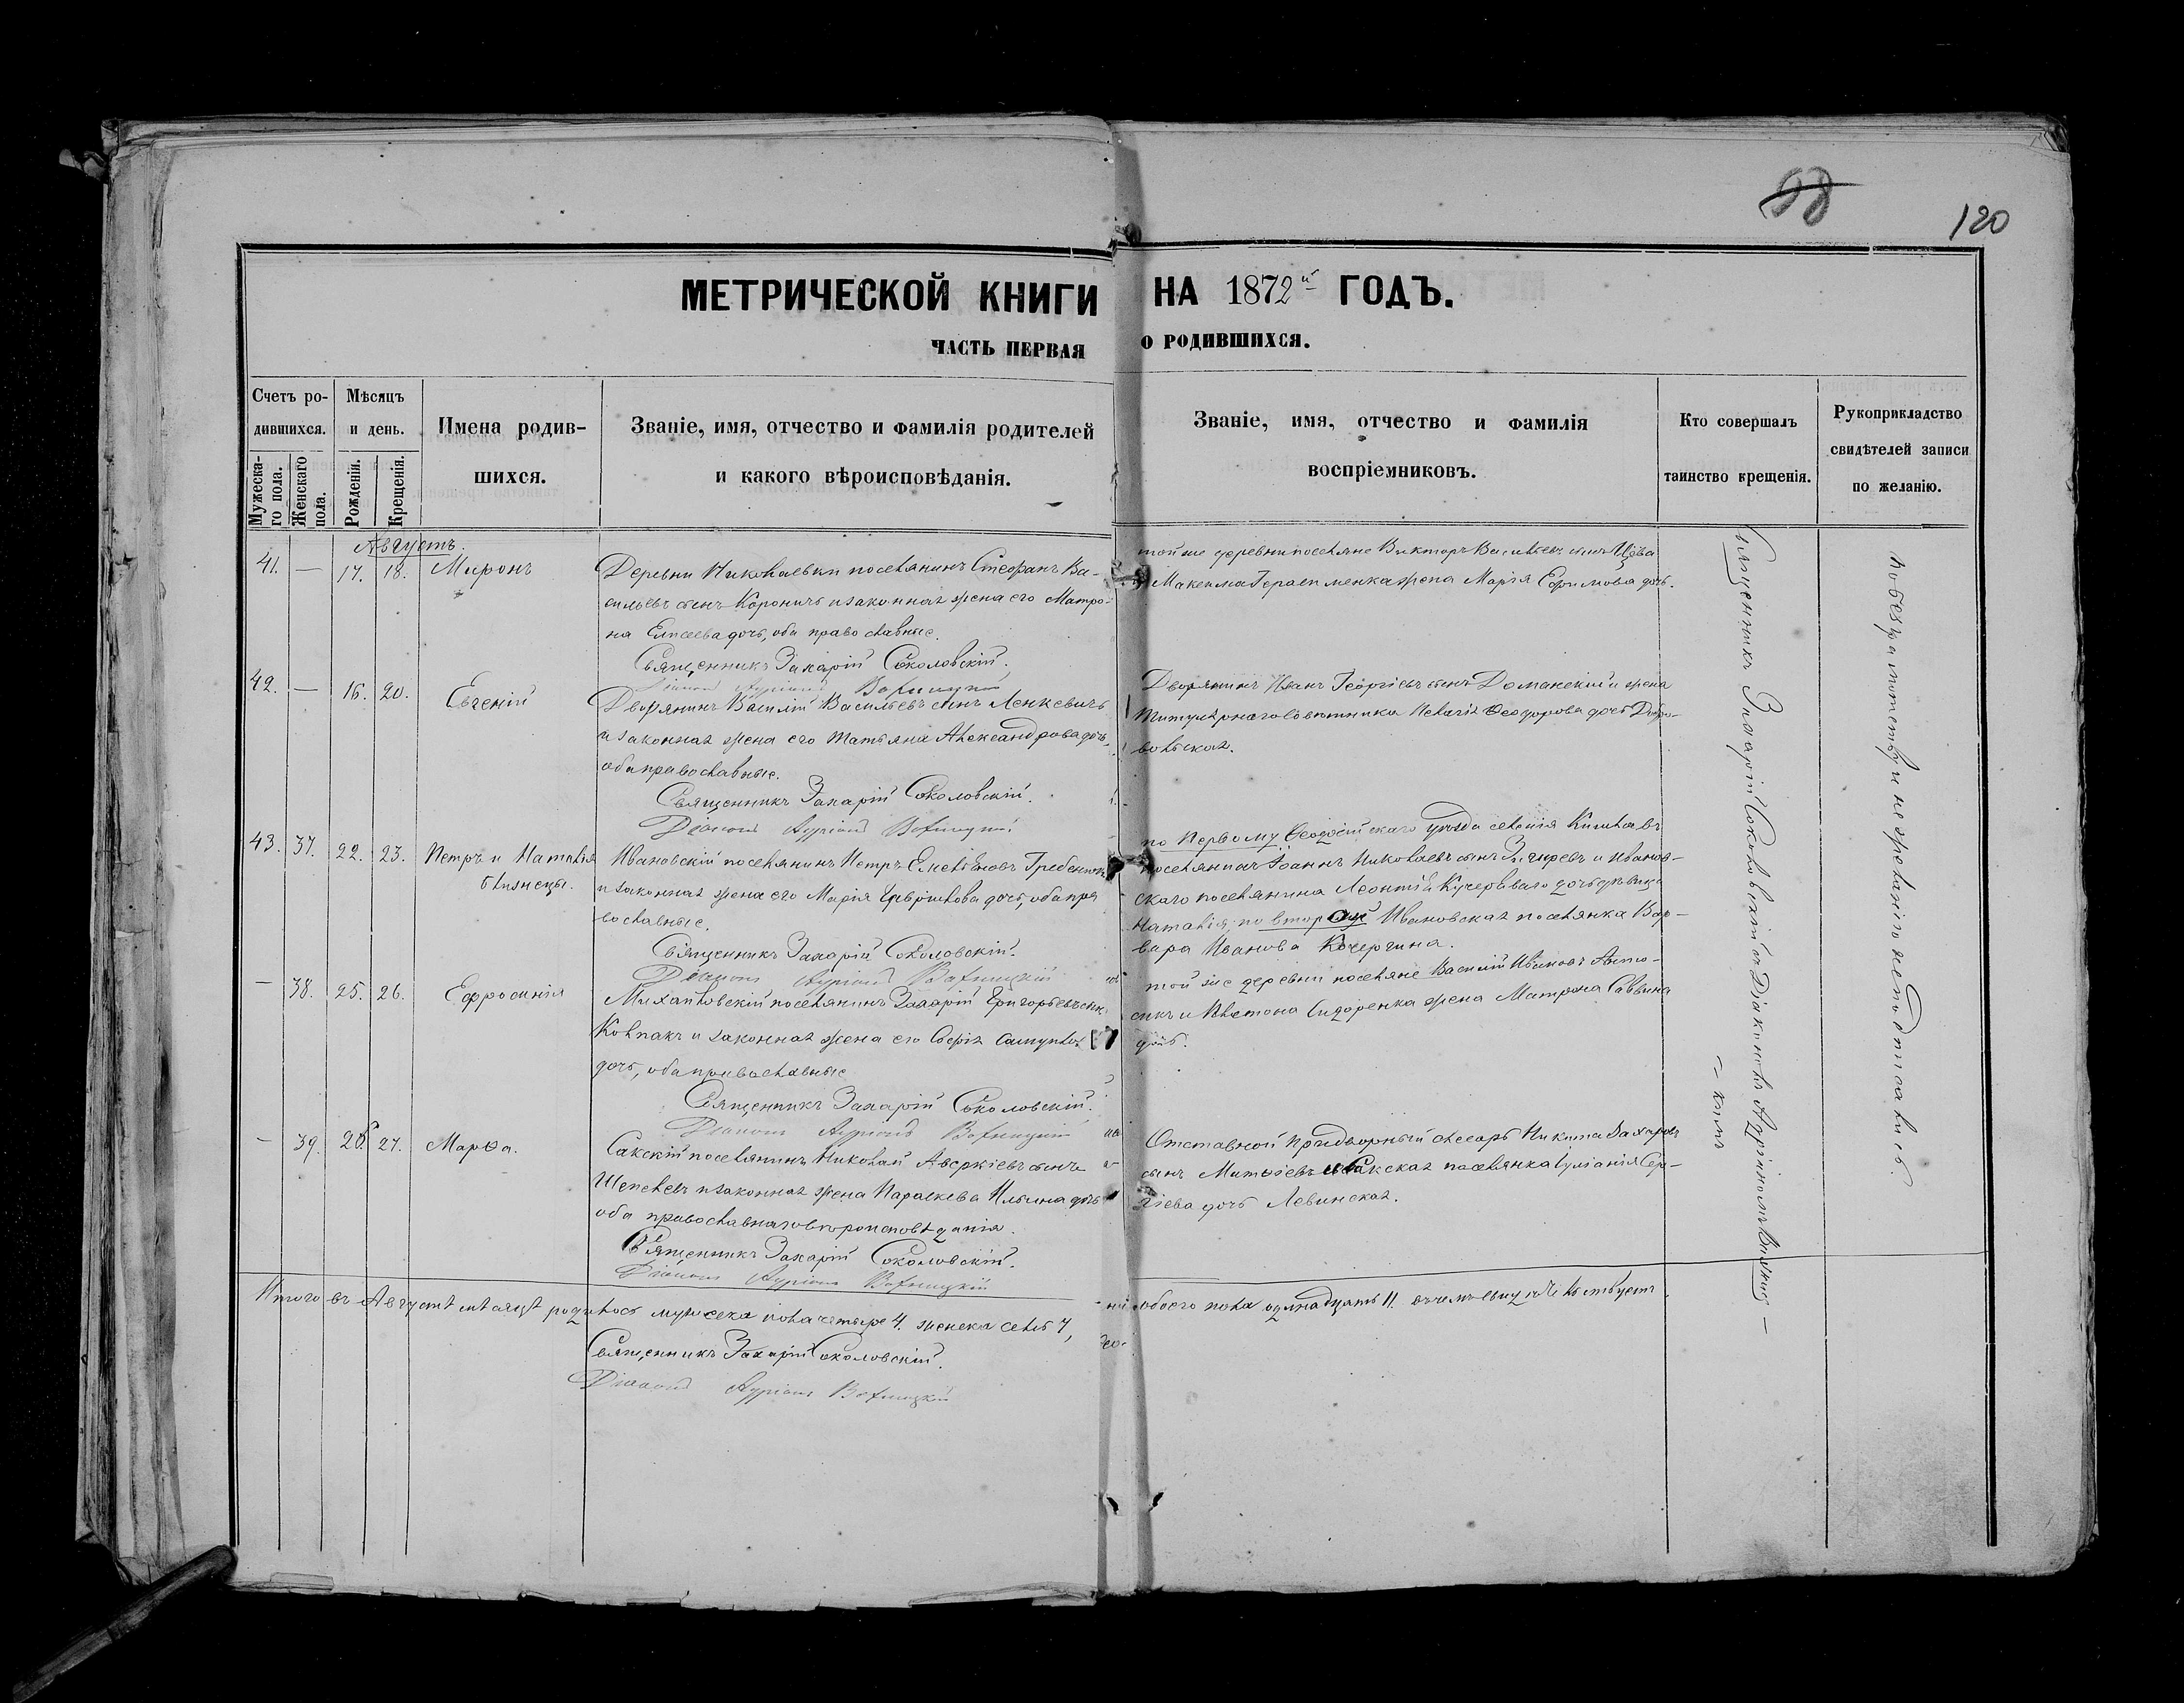 58
120
МЕТРИЧЕСКОЙ КНИГИ НА 1872й ГОДЪ.
ЧАСТЬ ПЕРВАЯ О РОДИВШИХСЯ.
Счетъ ро-
дившихся.
Мужеска-
го пола.
Женскаго
пола.
Мѣсяцъ
и день.
Рожденія.
Крещенія.
Имена родив-
шихся.
Званіе, имя, отчество и фамилія родителей
и какого вѣроисповѣданія.
Званіе, имя, отчество и фамилія
воспріемниковъ.
Кто совершалъ
таинство крещенія.
Рукоприкладство
свидѣтелей записи
по желанію.
Августъ.
41. — 17. 18. Миронъ
Деревни Николаевки поселянинъ Стефанъ Ва-
сильевъ сынъ Короничъ и законная жена его Матро-
на Елисеева дочь, оба православные.
Священникъ Захарій Соколовскій.
Діаконъ
той же деревни поселяне Викторъ Васильевъ сынъ
Максима жена Марія Ефимова дочь.
42. — 16. 20. Евгеній
Дворянинъ Василій Васильевъ сынъ Ленкевичъ
и законная жена его Татьяна Александрова дочь,
оба православные.
Священникъ Захарій Соколовскій.
Діаконъ
Дворянинъ Иванъ Георгіевъ сынъ Доманскій и жена
титулярнаго совѣтника Пелагія Ѳеодорова дочь Добро-
вольская.
43. 37. 22. 23. Петръ и Наталія
близнецы.
Ивановскій поселянинъ Петръ Гребенюкъ
и законная жена его Марія дочь, оба пра
вославные.
Священникъ Захарій Соколовскій.
Діаконъ
по Первому Ѳеодосійскаго уѣзда селенія
поселянинъ Іоаннъ Николаевъ сынъ и Иванов-
скаго поселянина Леонтія Кучеряваго дочь дѣвица
Наталія; по второй Ивановская поселянка Вар-
вара Иванова Кочергина.
— 38. 25. 26. Ефросинія
Михайловскій поселянинъ Захарій Григорьевъ сынъ
Ковпакъ и законная жена его Софія
дочь, оба православные
Священникъ Захарій Соколовскій.
Діаконъ
той же деревни поселяне Василій Ивановъ
и Сидоренка жена Матрона Саввина
дочь.
— 39. 26. 27. Марѳа.
Сакскій поселянинъ Николай Аверкіевъ сынъ
Шепелевъ и законная жена Параскева Ильина дочь
оба православнаго вѣроисповѣданія.
Священникъ Захарій Соколовскій.
Діаконъ
Отставной придворный слесарь Никита Захаровъ
сынъ и Сакская поселянка Іуліанія Сер-
гіева дочь Левинская.
Священникъ Захарій Соколовскій съ Діакономъ
По безграмотству и не желанію не подписались.
Итого въ Августѣ мѣсяцѣ родилось мужеска пола четыре 4. женска семь 7,
обоего пола одинадцать 11.
Священникъ Захарій Соколовскій.
Діаконъ